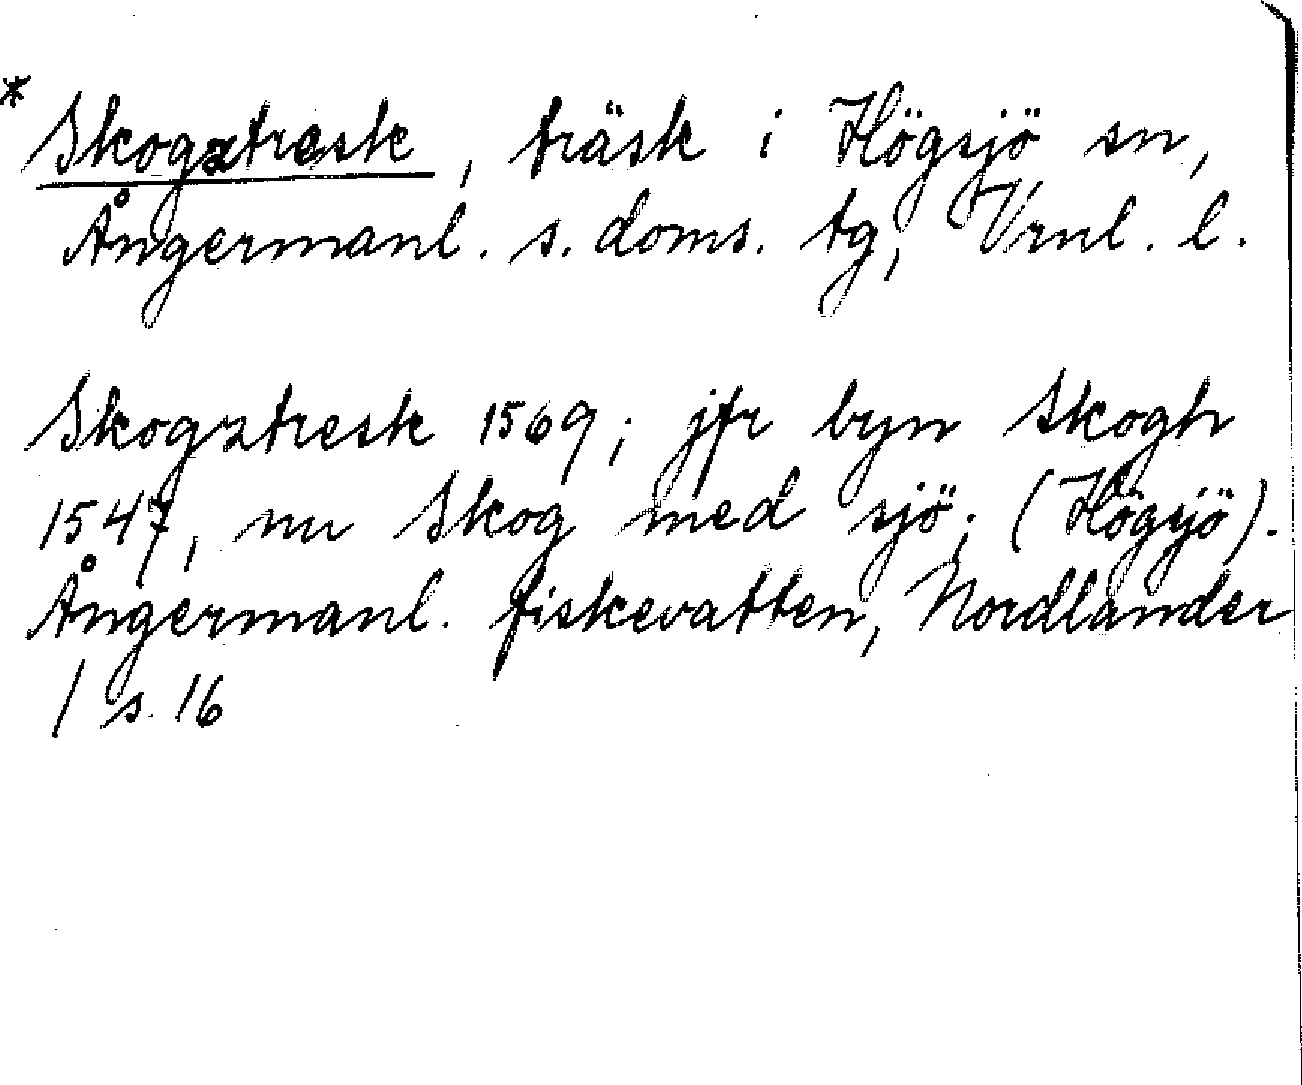 * Skogztresk, träsk i Högsjö sn,
Ångermanl. s. doms. tg, Vrnl. l.
Skogztresk 1569; jfr byn Skogh
1547, nu Skog med sjö; (Högsjö).
Ångermanl. fiskevatten, Nordlander
/ s. 16